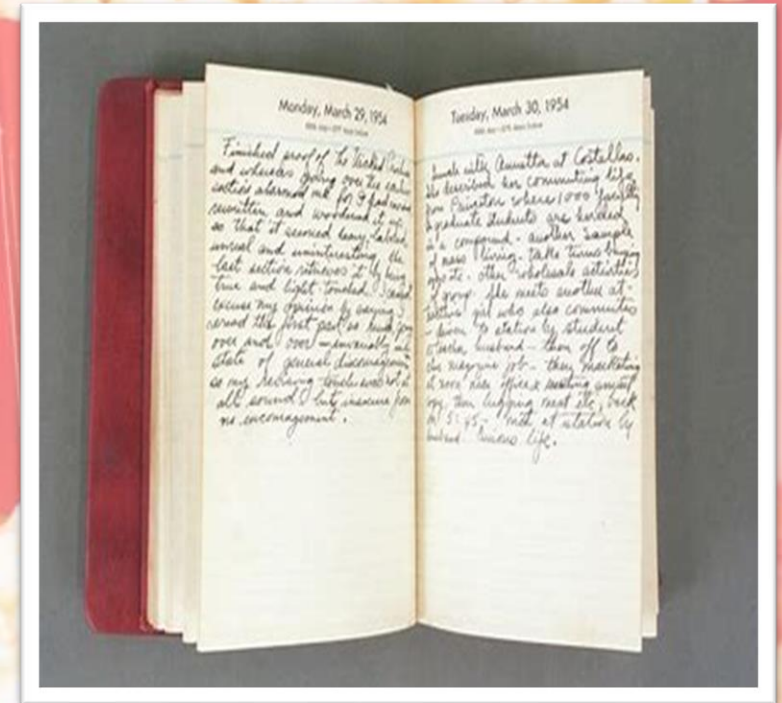 Monday, March 29, 1954
Finished proof of The Wicked
and whereas going over the earlier
section alarmed me for I had
rewritten and woodened it
so that it seemed heavy, labored,
unreal and uninteresting, the
last section retrieves it by being
true and light touched. I could
excuse my opinion by saying I
reread the first part so much, going
over and over — in
state of general discouragement
so my revising touch was not at
all sound but insecure from
no encouragement.
Tuesday, March 30, 1954
with at Costellos.
She described her commuting life
from Princeton where 1000 faculty
graduate students are herded
in a compound - another sample
of mass living. take turns buying
etc - other wholesale activities
of group. She meets another at-
tractive girl who also commutes
- driven to station by student
teacher husband - then off to
magazine job - then marketing
at noon near office &
then lugging meat etc, back
on 5:45 - met at station by
husband. Curious life.